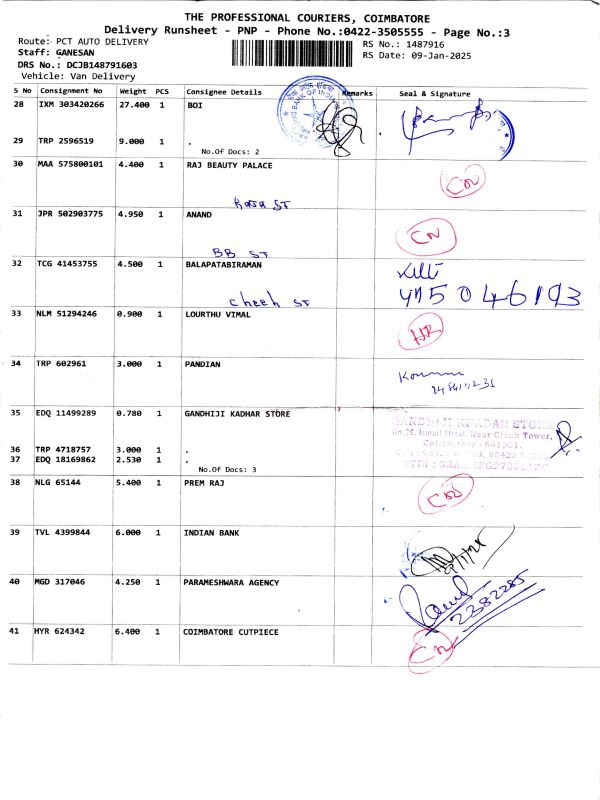 THE PROFESSIONAL COURIERS, COIMBATORE
Delivery Runsheet - PNP - Phone No.:0422-3505555 - Page No.:3
Route: PCT AUTO DELIVERY RS No.: 1487916
Staff: GANESAN RS Date: 09-Jan-2025
DRS No.: DCJB148791603
Vehicle: Van Delivery
S No Consignment No Weight PCS Consignee Details Remarks Seal & Signature
28 IXM 303420266 27.400 1 BOI
29 TRP 2596519 9.000 1 .
No.Of Docs: 2
30 MAA 575800101 4.400 1 RAJ BEAUTY PALACE
CN
Rasa ST
31 JPR 502903775 4.950 1 ANAND
CN
BB ST
32 TCG 41453755 4.500 1 BALAPATABIRAMAN
cheeh ST
33 NLM 51294246 0.900 1 LOURTHU VIMAL
HR
34 TRP 602961 3.000 1 PANDIAN
35 EDQ 11499289 0.780 1 GANDHIJI KADHAR STORE
GANDHIJI KHADAR STORE
No.26, Ismail Street, Near Clock Tower,
Coimbatore - 641001.
36 TRP 4718757 3.000 1 .
37 EDQ 18169862 2.530 1 .
No.Of Docs: 3
38 NLG 65144 5.400 1 PREM RAJ
CN
39 TVL 4399844 6.000 1 INDIAN BANK
40 MGD 317046 4.250 1 PARAMESHWARA AGENCY
2382285
41 HYR 624342 6.400 1 COIMBATORE CUTPIECE
CN